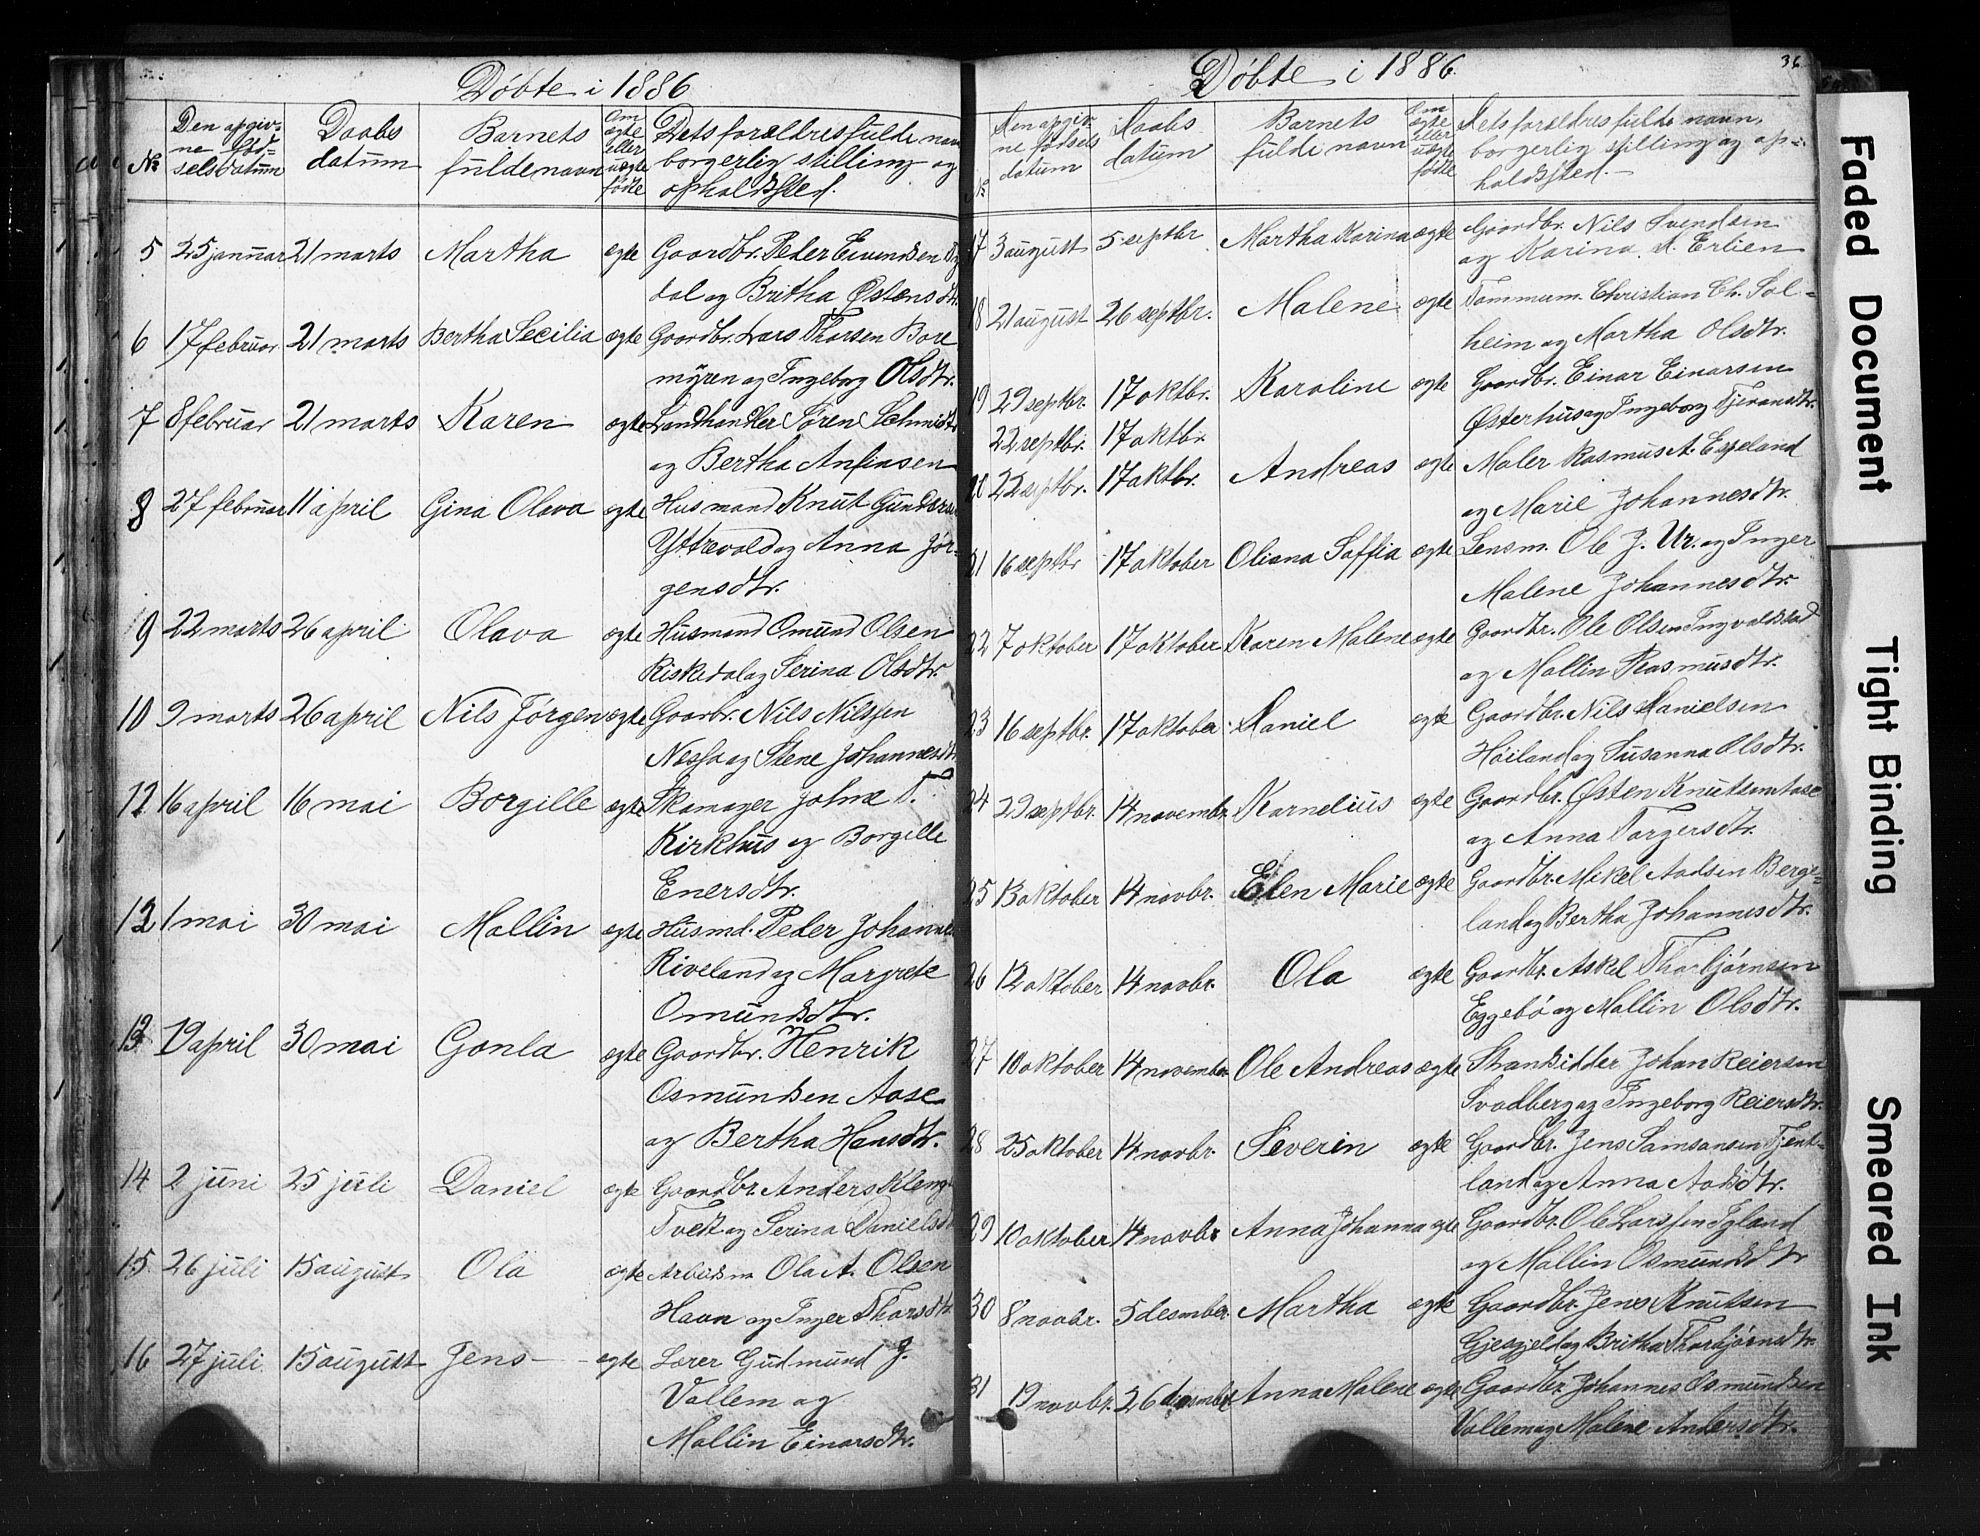 Döbte i 1886
№
Den opgiv-
ne fød-
selsdatum
Daabs
datum
Barnets
fulde navn
Om
ægte
eller
uægte
fødte
Dets forældres fulde navn
borgerlig stilling og
opholdssted.
5 25 januar 21 marts Martha ægte Gaardbr. Peder Eivendsen
dal og Britha Østensdtr.
6 17 februar 21 marts Bertha Secilia ægte Gaardbr. Lars Thorsen Bore
myren og Ingeborg Olsdtr.
7 8 februar 21 marts Karen ægte Landhandler Søren Schmidt
og Bertha Anfinsen
8 27 februar 11 april Gina Olava ægte Husmand Knut Gunders
Yttrevold og Anna Jør-
gensdtr.
9 22 marts 26 april Olava ægte Husmand Omund Olsen
Riskedal og Serina Olsdtr.
10 9 marts 26 april Nils Jørgen ægte Gaarbr. Nils Nilssen
Nessa og Stene Johannesdtr
11 16 april 16 mai Borgille ægte Skomager Johne T.
Kirkhus og Borgille
Enersdtr.
12 1 mai 30 mai Mallin ægte Husmd. Peder Johannes
Riveland og Margrete
Omundsdtr.
13 19 april 30 mai Gonla ægte Gaardbr. Henrik
Osmundsen Aase
og Bertha Hansdtr.
14 2 juni 25 juli Daniel ægte Gaardbr. Anders Kleng
Tveit og Serina Danielsd
15 26 juli 15 august Ola ægte Arbeidsm Ola A. Olsen
Havn og Inger Thorsdtr
16 27 juli 15 august Jens ægte Lærer Gudmund J.
Vallem og
Mallin Einarsdtr.
Döbte i 1886
36
№
Den opgiv-
ne fødsels
datum
Daabs
datum
Barnets
fulde navn
Om
ægte
eller
uægte
fødte
Dets forældres fulde navn,
borgerlig stilling og op-
holdssted.
17 3 august 5 septbr Martha Karina ægte Gaardbr. Nils Svendsen
og Karina A. Erlien
18 21 august 26 septbr. Malene ægte Tommerm. Christian Ch. Sol-
heim og Martha Olsdtr.
19 29 septbr. 17 oktbr. Karoline ægte Gaardbr. Einar Einarsen
Østerhus og Ingeborg Tjeransdtr.
22 septbr. 17 oktbr.
20 22 septbr. 17 oktbr. Andreas ægte Maler Rasmus A. Espeland
og Marie Johannesdtr.
21 16 septbr 17 oktober Oliana Soffia ægte Lensm. Ole J. Ur. og Inger
Malene Johannesdtr.
22 7 oktober 17 oktober Karen Malene ægte Gaardbr. Ole Olsen Ingvaldstad
og Mallin Rasmusdtr.
23 16 septbr. 17 oktober Daniel ægte Gaardbr. Nils Danielsen
Høiland og Susanna Olsdtr.
24 29 septbr. 14 novembr. Karnelius ægte Gaardbr. Østen Knutsen Aase
og Anna Torgersdtr.
25 13 oktober 14 novbr. Elen Marie ægte Gaardbr. Mikel Aadsen Berge-
land og Bertha Johannesdtr.
26 12 oktober 14 novbr. Ola ægte Gaardbr. Askel Thorbjørnsen
Eggebö og Mallin Olsdtr.
27 10 oktober 14 november Ole Andreas ægte Strandsidder Johan Reiersen
Svadberg og Ingeborg Reiersdtr.
28 25 oktober 14 novbr. Severin ægte Gaardbr. Jens Samsonsen Tjent-
land og Anna Aadsdtr.
29 10 oktober 14 novbr Anna Johanna ægte Gaardbr. Ole Larssen Tyland
og Mallin Osmundsdtr
30 8 novbr. 5 desmber Martha ægte Gaardbr. Jens Knutsen
og Britha Thorbjørnsdtr.
31 19 novbr. 26 desmber Anna Malene ægte Gaardbr. Johannes Osmundsen
Vallem og Malene Andersdtr.
Faded Document
Tight Binding
Smeared Ink